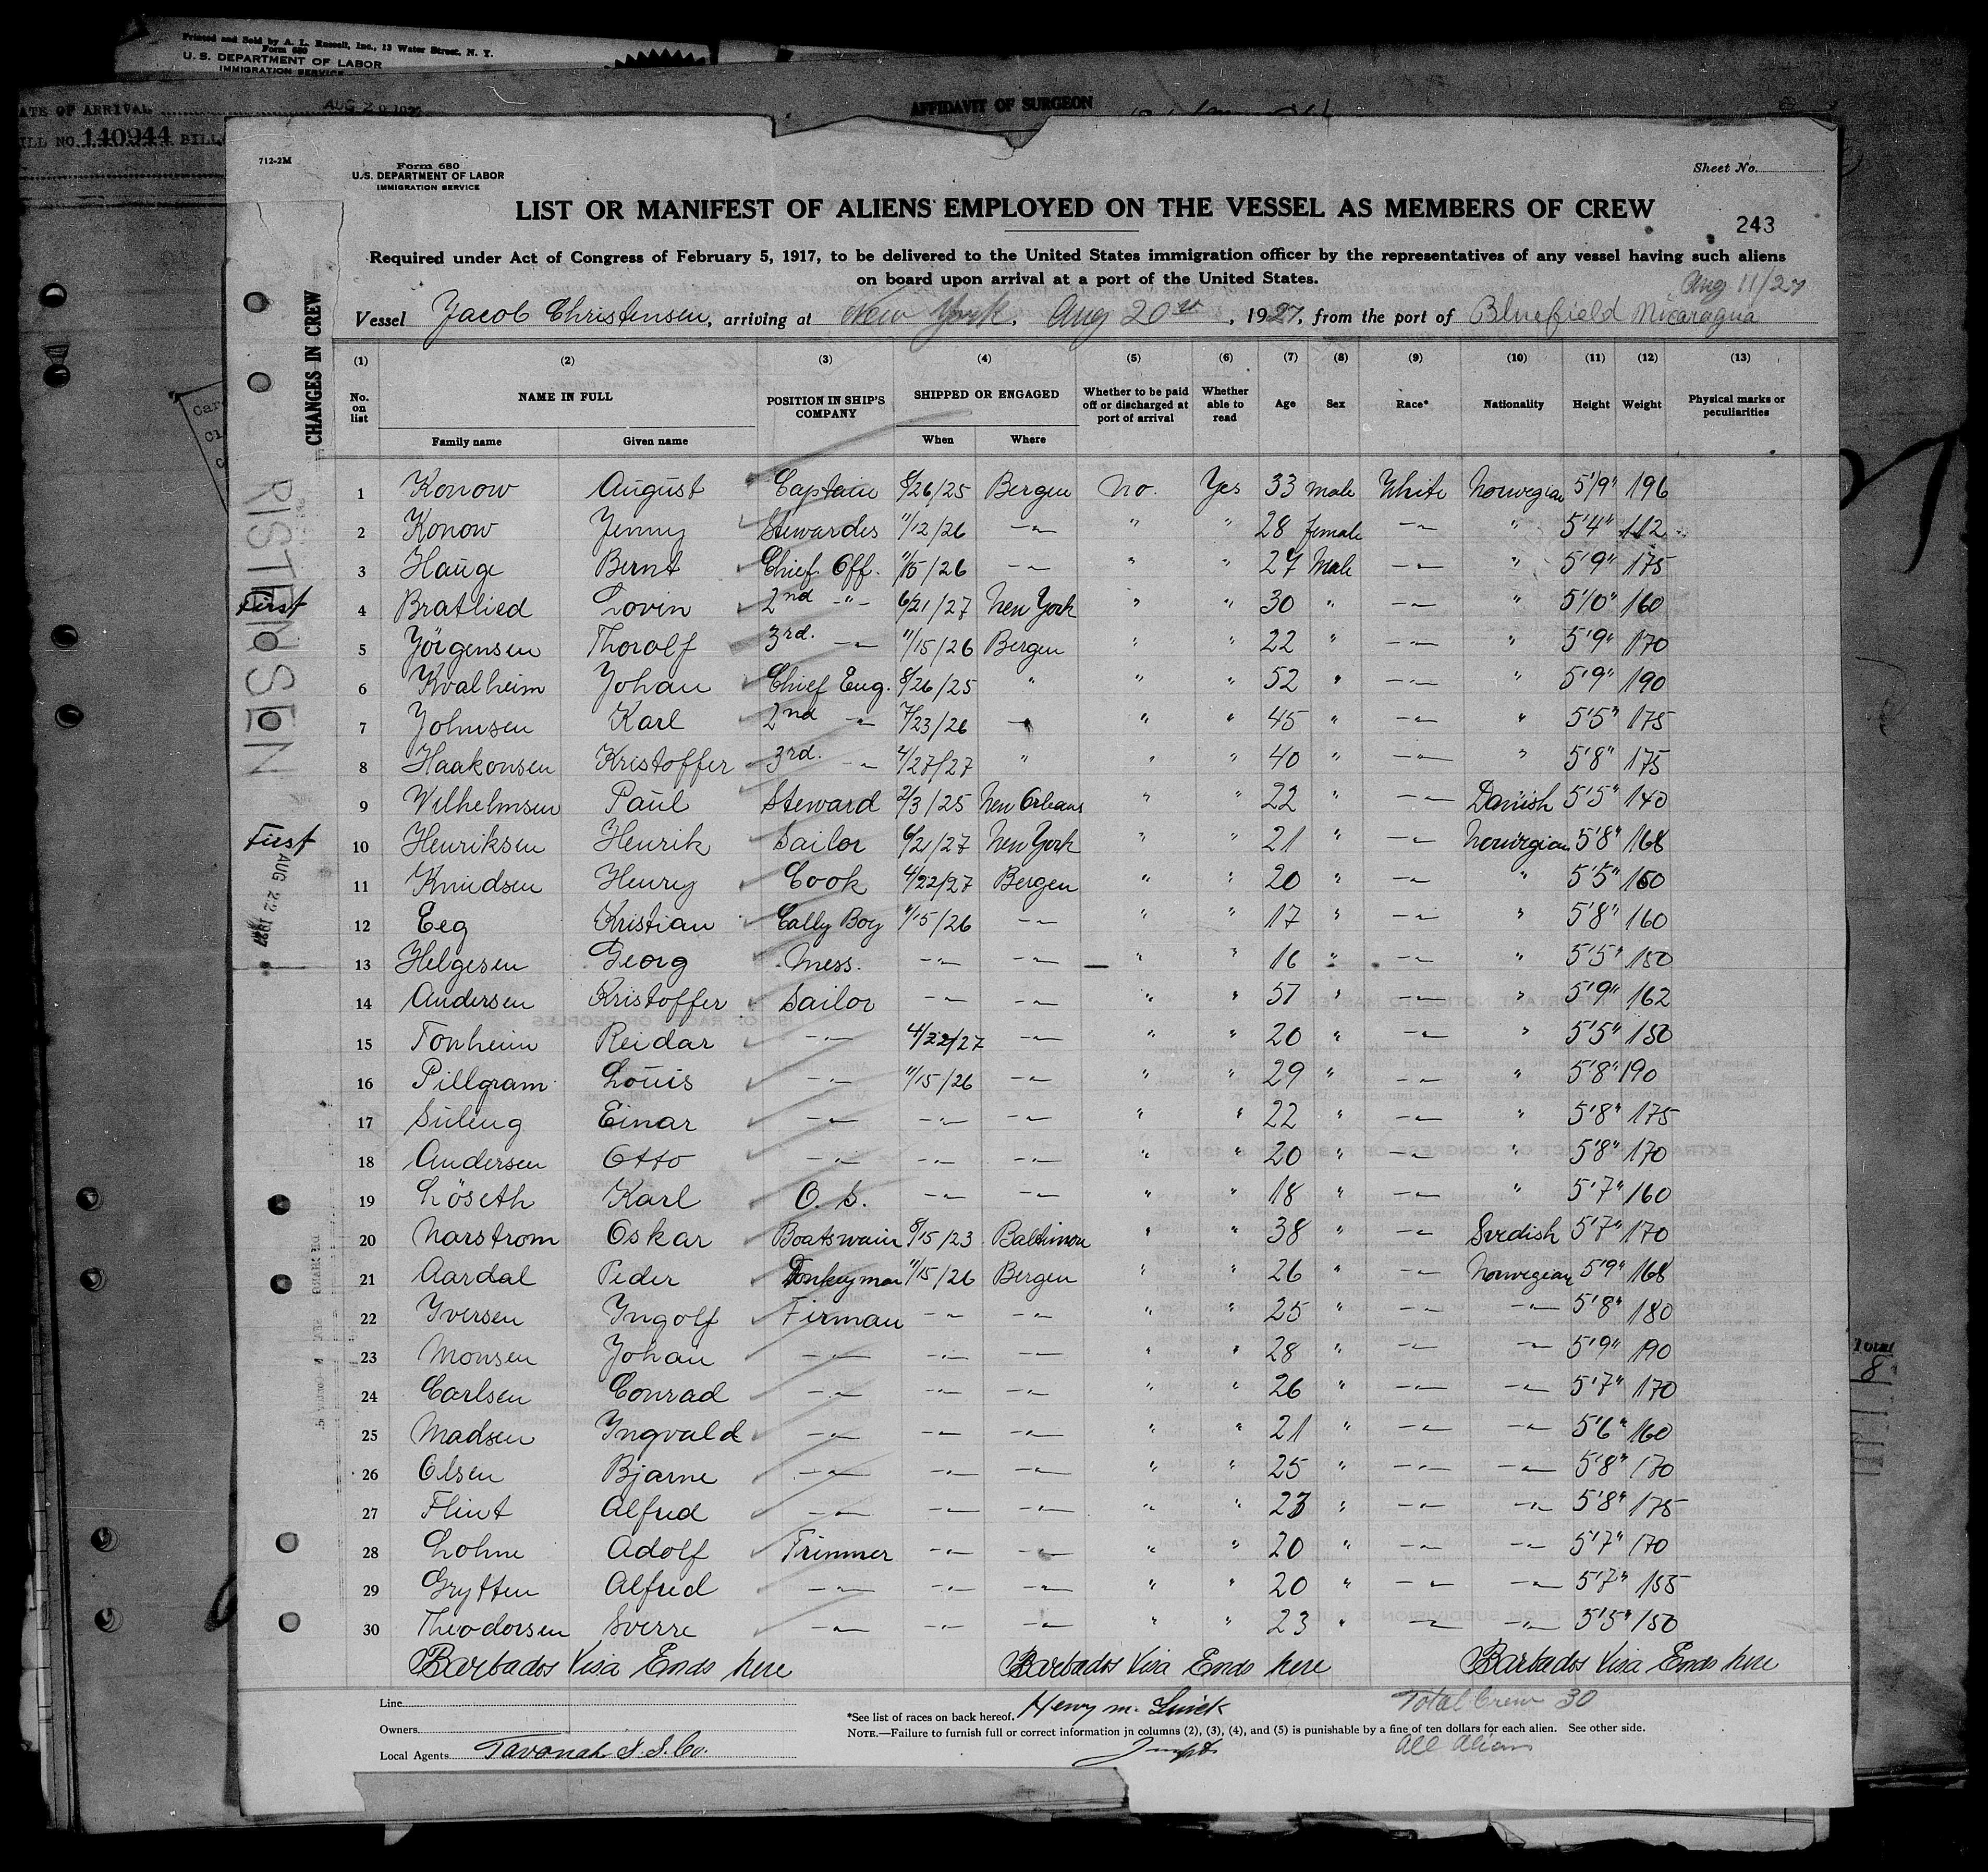 Printed and Sold by A. L. Russell, Inc., 13 Water Street, N. Y.
Form 680
U. S. DEPARTMENT OF LABOR
IMMIGRATION SERVICE
ATE OF ARRIVAL AUG 20 1927
ILL NO. 140944 BILL
AFFIDAVIT OF SURGEON
712-2M
Form 680
U.S. DEPARTMENT OF LABOR
IMMIGRATION SERVICE
Sheet No.
LIST OR MANIFEST OF ALIENS EMPLOYED ON THE VESSEL AS MEMBERS OF CREW
243
Required under Act of Congress of February 5, 1917, to be delivered to the United States immigration officer by the representatives of any vessel having such aliens
on board upon arrival at a port of the United States.
Aug 11/27
Vessel Jacob Christensen, arriving at New York. Aug 20th, 1927, from the port of Bluefield Nicaragua
CHANGES IN CREW
(1) (2) (3) (4) (5) (6) (7) (8) (9) (10) (11) (12) (13)
No. on list NAME IN FULL POSITION IN SHIP'S COMPANY SHIPPED OR ENGAGED Whether to be paid off or discharged at port of arrival Whether able to read Age Sex Race* Nationality Height Weight Physical marks or peculiarities
Family name Given name When Where
1 Konow August Captain 8/26/25 Bergen No. Yes 33 male White Norwegian 5'9" 196
2 Konow Jenny Stewardes 11/12/26 -"- " " 28 female -"- " 5'4" 112
3 Hauge Bernt Chief Off. 11/15/26 -"- " " 27 Male -"- " 5'9" 175
First 4 Bratlied Lovin 2nd -"- 6/21/27 New York " " 30 " -"- " 5'10" 160
5 Jörgensen Thorolf 3rd. -"- 11/15/26 Bergen " " 22 " -"- " 5'9" 170
6 Kvalheim Johan Chief Eng. 8/26/25 " " " 52 " -"- " 5'9" 190
7 Johnsen Karl 2nd -"- 7/23/26 -"- " " 45 " -"- " 5'5" 175
8 Haakonsen Kristoffer 3rd. -"- 4/27/27 " " " 40 " -"- " 5'8" 175
9 Wilhelmsen Paul Steward 2/3/25 New Orleans " " 22 " -"- Danish 5'5" 140
First 10 Henriksen Henrik Sailor 6/21/27 New York " " 21 " -"- Norwegian 5'8" 168
11 Knudsen Henry Cook 4/22/27 Bergen " " 20 " -"- " 5'5" 160
12 Eeg Kristian Cally Boy 11/15/26 -"- " " 17 " -"- " 5'8" 160
13 Helgesen Georg Mess. -"- -"- " " 16 " -"- " 5'5" 150
14 Andersen Kristoffer Sailor -"- -"- " " 57 " -"- " 5'9" 162
15 Tonheim Reidar -"- 4/22/27 -"- " " 20 " -"- " 5'5" 150
16 Pillgram Louis -"- 11/15/26 -"- " " 29 " -"- " 5'8" 190
17 Suleng Einar -"- -"- -"- " " 22 " -"- " 5'8" 175
18 Andersen Otto -"- -"- -"- " " 20 " -"- " 5'8" 170
19 Löseth Karl O. S. -"- -"- " " 18 " -"- " 5'7" 160
20 Narstrom Oskar Boatswain 8/15/23 Baltimore " " 38 " -"- Svedish 5'7" 170
21 Aardal Peder Donkeyman 11/15/26 Bergen " " 26 " -"- Norwegian 5'9" 168
22 Iversen Ingolf Firman -"- -"- " " 25 " -"- -"- 5'8" 180
23 Monsen Johan -"- -"- -"- " " 28 " -"- -"- 5'9" 190
24 Carlsen Conrad -"- -"- -"- " " 26 " -"- -"- 5'7" 170
25 Madsen Ingvald -"- -"- -"- " " 21 " -"- -"- 5'6" 160
26 Olsen Bjarne -"- -"- -"- " " 25 " -"- -"- 5'8" 170
27 Flint Alfred -"- -"- -"- " " 23 " -"- -"- 5'8" 175
28 Lohne Adolf Trimmer -"- -"- " " 20 " -"- -"- 5'7" 170
29 Grytten Alfred -"- -"- -"- " " 20 " -"- -"- 5'7" 155
30 Theodorsen Sverre -"- -"- -"- " " 23 " -"- -"- 5'5" 150
AUG 22 1927
Barbados Visa Ends here Barbados Visa Ends here Barbados Visa Ends here
Line
Owners
Local Agents
*See list of races on back hereof.
Total Crew 30
NOTE.—Failure to furnish full or correct information in columns (2), (3), (4), and (5) is punishable by a fine of ten dollars for each alien. See other side.
All Aliens
Total
8